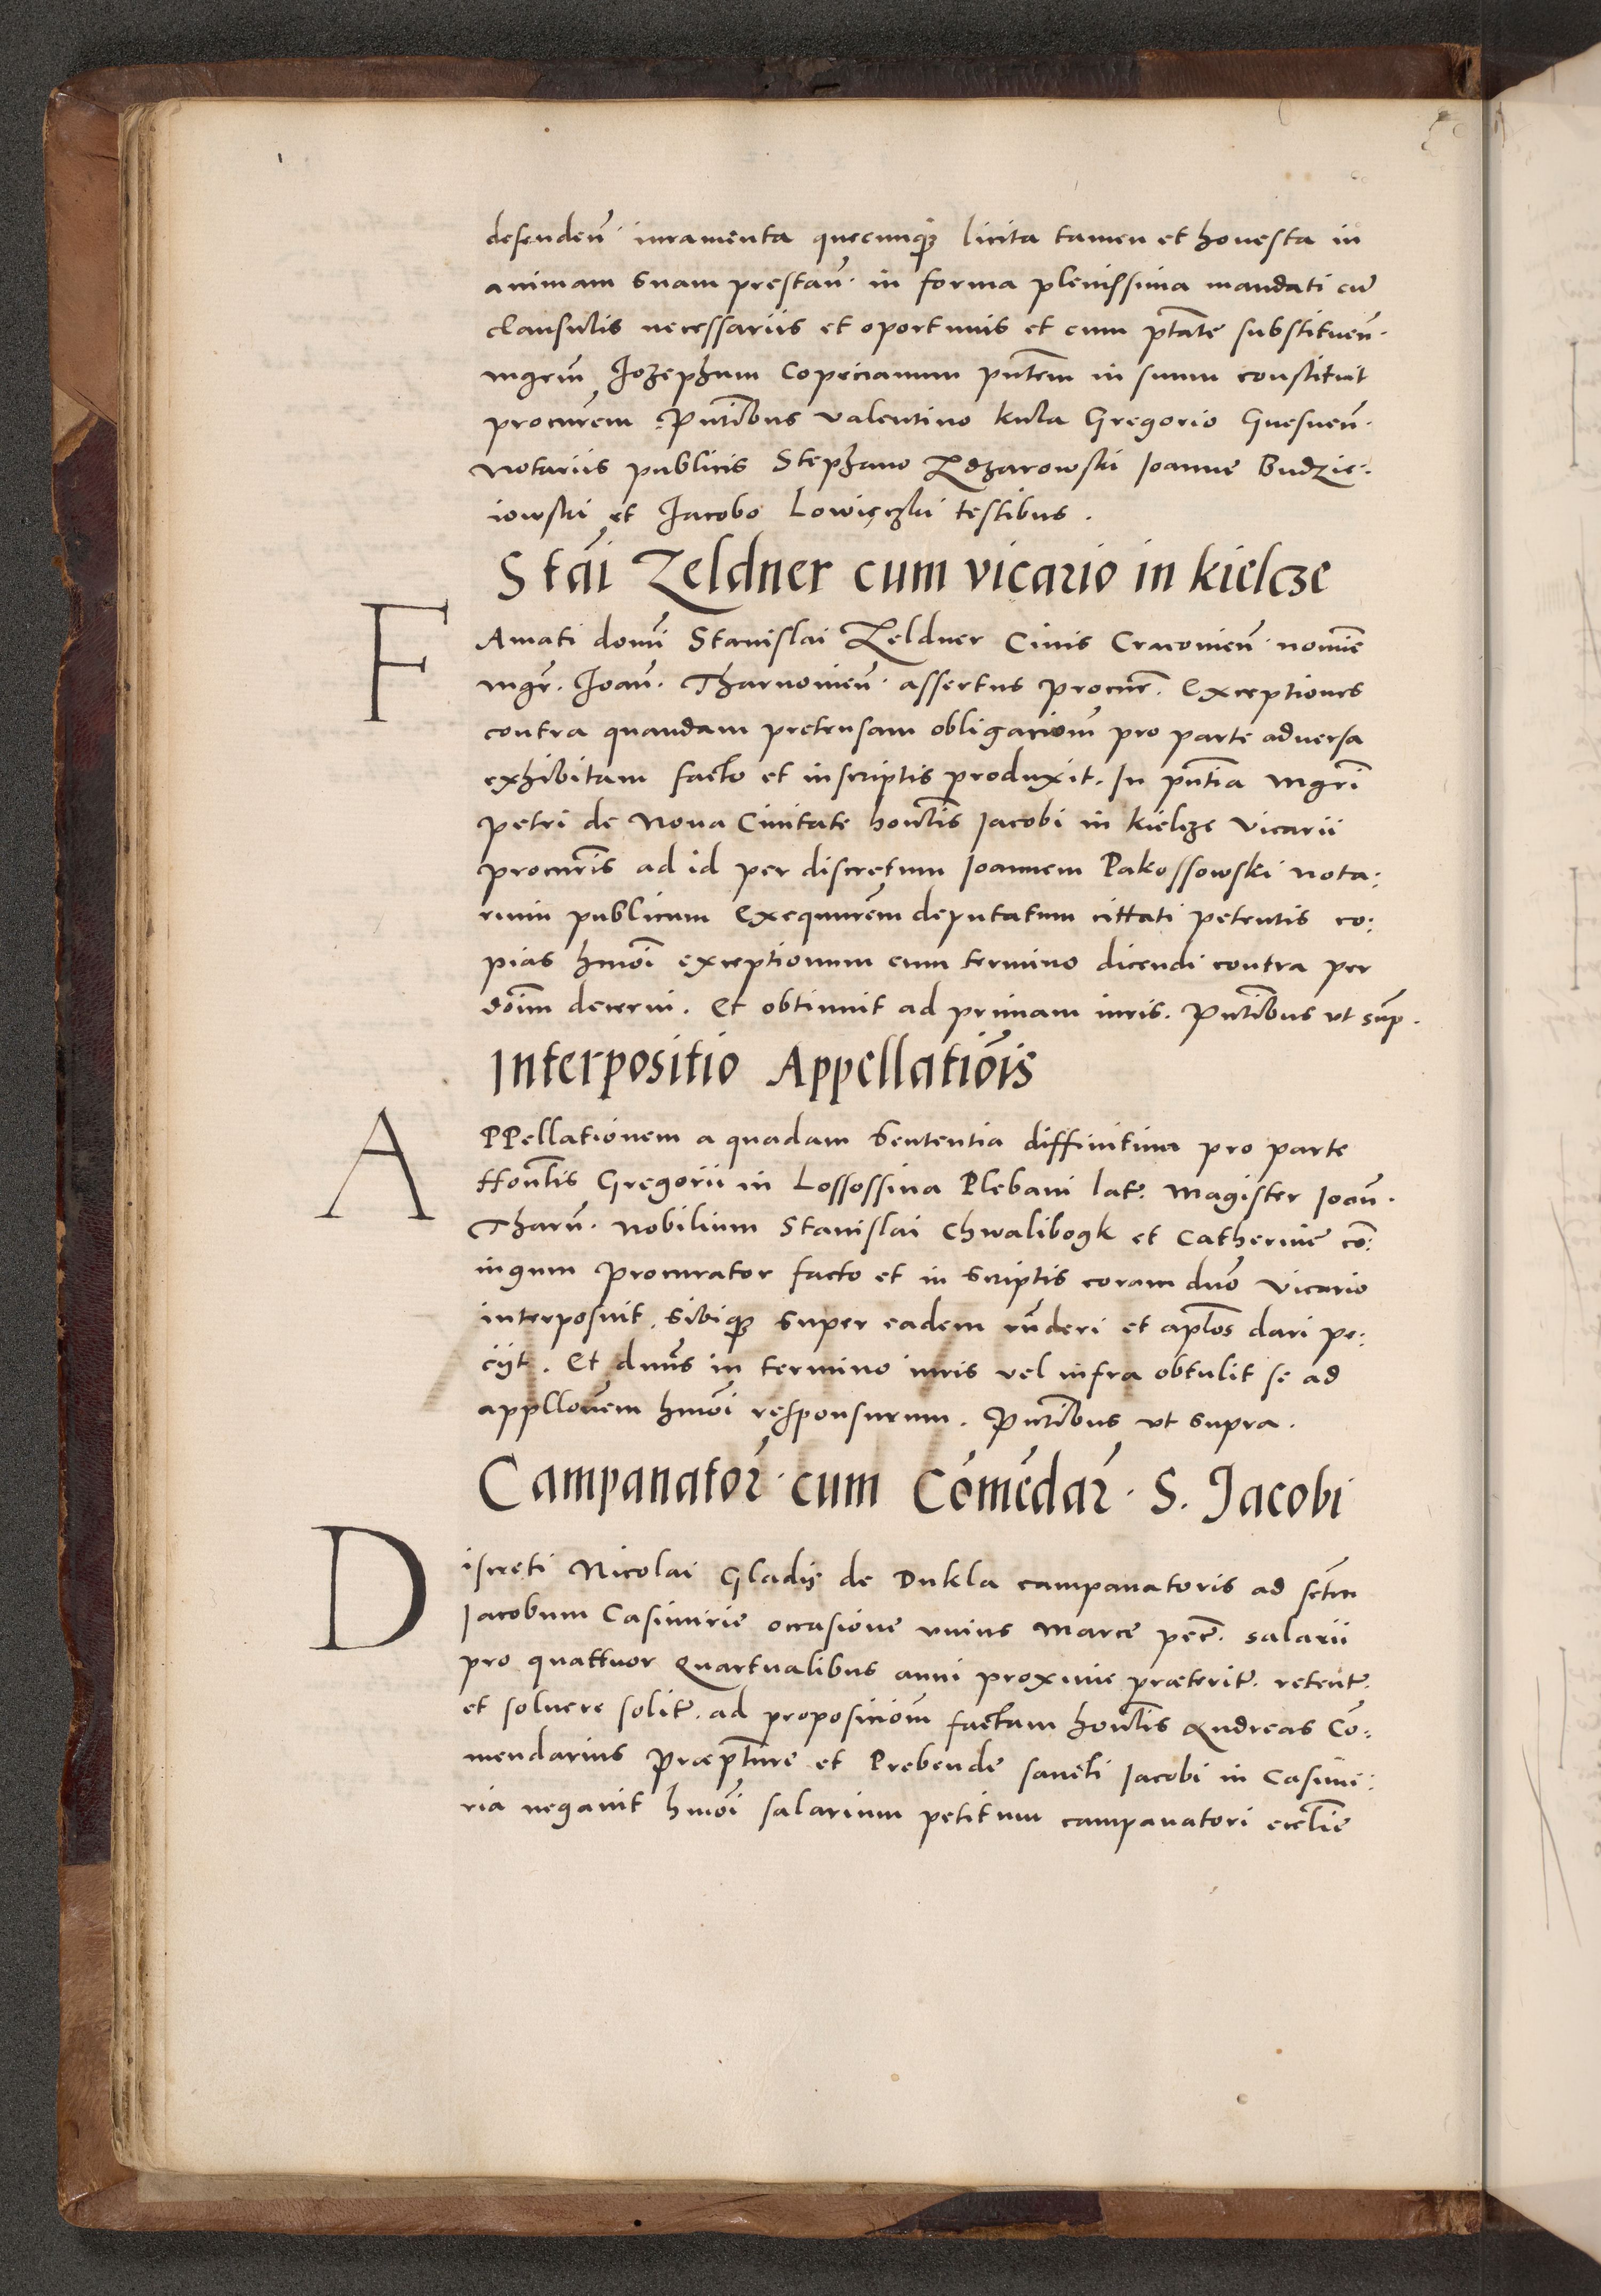 defenden̄ iuramenta quecunq̢ licita tamen et honesta in
animam suam prestan̄. in forma plenissima mandati cū
clausulis necessariis et oportunis et cum ptāte substituen̄.
mgrm̄ Jozephum Copecianum pn̄tem in suum constituit
procurēm. Pn̄tibus Valentino Kula Gregorio Gnesnen̄.
Notariis publicis Stephano Zdzarowski Joanne Budzie:
iowski et Jacobo Lowięczki testibus.
Stāi Zeldner cum vicario in kielcze
FAmati domī Stanislai Zeldner Ciuis Cracouien̄. nomīe
mgr̄. Joan̄. Tharnouien̄. assertus procur̄. Exceptiones
contra quandam pretensam obligacionm̄ pro parte aduersa
exhibitam facto et in scriptis produxit. In pn̄tia Mgrī
Petri de Noua Ciuitate honlīs Jacobi in kielcze Vicarii
procurīs ad id per discretum Joannem Pakossowski nota:
rium publicum Exequurēm deputatum cittati petentis co:
pias hmōi exceptionum cum termino dicendi contra per
dōim decerni. Et obtinuit ad primam iuris. Pn̄tibus vt sup̄.
Interpositio Appellatiōis
APPellationem a quadam Sententia diffinitiua pro parte
Honlīs Gregorii in Lossossina Plebani lat̄. Magister Joan̄.
Tharn̄. Nobilium Stanislai Chwalibogk et Catherine cō:
iugum Procurator facto et in scriptis coram dnō Vicario
interposuit. Sibiq̢ super eadem rn̄deri et aplōs dari pe:
ciit. Et dnūs in termino iuris vel infra obtulit se ad
appllonēm hmōi responsurum. Pn̄tibus vt supra.
Campanator̄. cum Cōmēdar̄. S. Jacobi
Discreti Nicolai Gladisz de Dukla campanatoris ad sc̄tm
Jacobum Casimirie occasione vnius Marce pec̄. salarii
pro quattuor Quartualibus anni proxime præterit̄. retent̄.
et soluere solit̄. ad proposicionm̄ factam honlīs Andreas Cō:
mendarius Præptūre et Prebende sancti Jacobi in Casimi:
ria negauit hmōi salarium petitum campanatori ecclīe